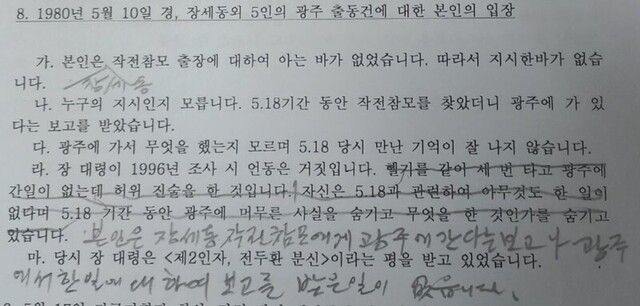 8. 1980년 5월 10일 경, 장세동외 5인의 광주 출동건에 대한 본인의 입장
가. 본인은 작전참모 출장에 대하여 아는 바가 없었습니다. 따라서 지시한바가 없습
니다. 장세동
나. 누구의 지시인지 모릅니다. 5.18기간 동안 작전참모를 찾았더니 광주에 가 있
다는 보고를 받았습니다.
다. 광주에 가서 무엇을 했는지 모르며 5.18 당시 만난 기억이 잘 나지 않습니다.
라. 장 대령이 1996년 조사 시 언동은 거짓입니다. 헬기를 같이 세 번 타고 광주에
간일이 없는데 허위 진술을 한 것입니다. 자신은 5.18과 관련하여 아무것도 한 일이
없다며 5.18 기간 동안 광주에 머무른 사실을 숨기고 무엇을 한 것인가를 숨기고
있습니다. 본인은 장세동 작전참모에게 광주에 간다는 보고나 광주
마. 당시 장 대령은 <제2인자, 전두환 분신>이라는 평을 받고 있었습니다.
에서 한일에 대하여 보고를 받은일이 없습니다.